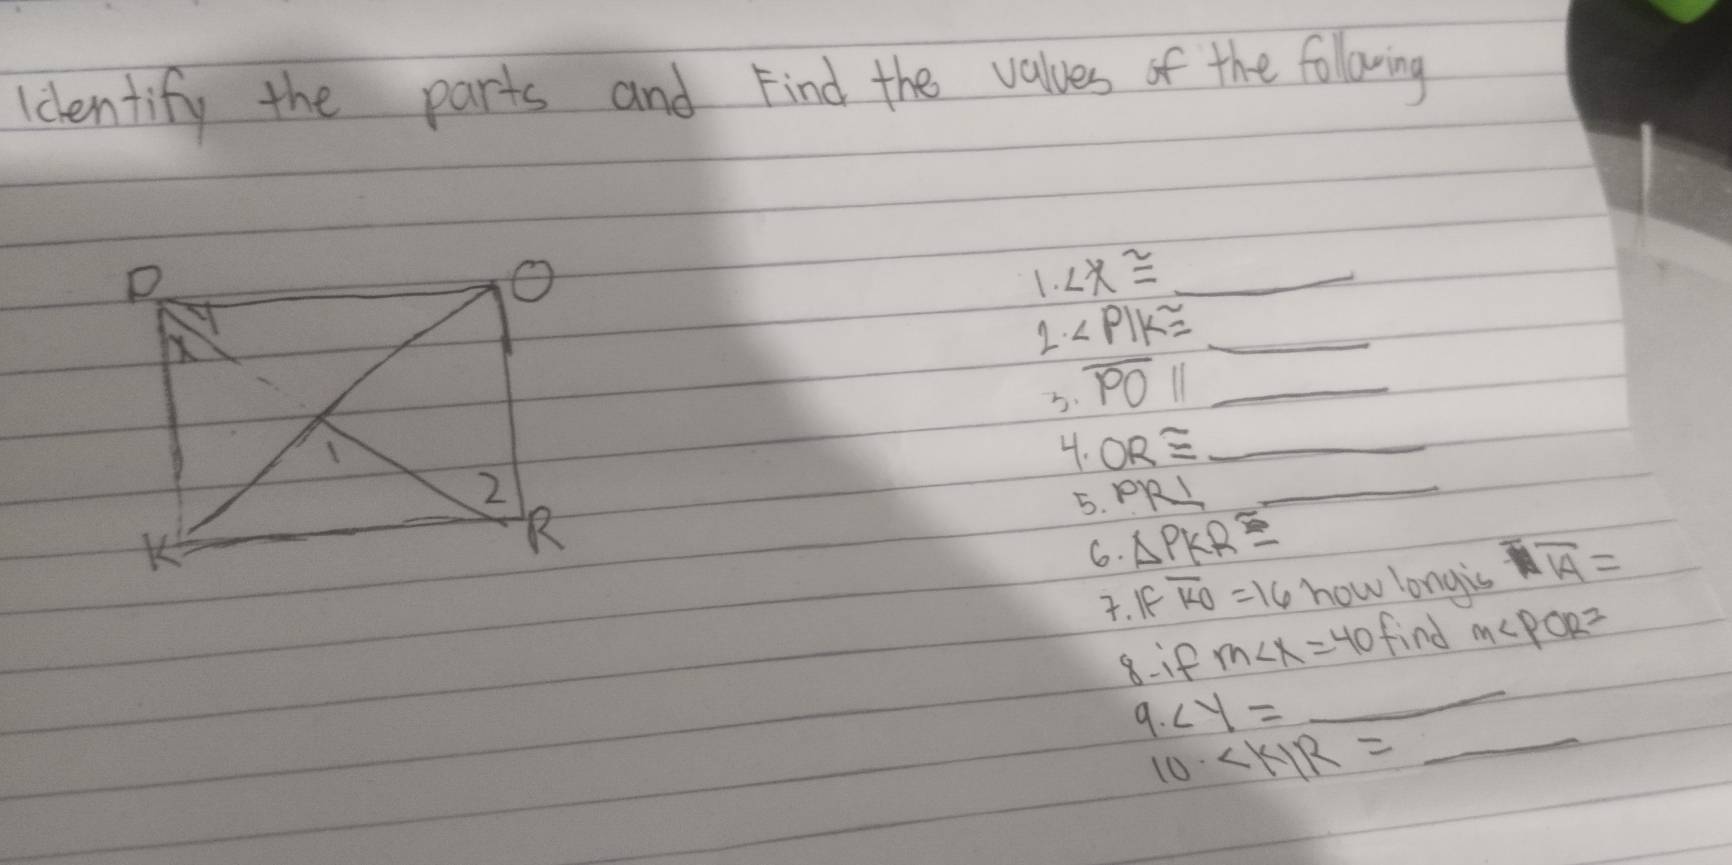 Identify the parts and Find the values of the following
P
O
Y
X
1
2
K
R
1. <X ≅ ____
2. < P1K ≅ ____
3. PO || ____
4. OR ≅ ____
5. PR ⊥ ____
6. Δ PKR ≅
7. IF KO = 16 how long is =
8. if m<X = 40 find m<POR =
9. <Y = ____
10. <K1R = ____